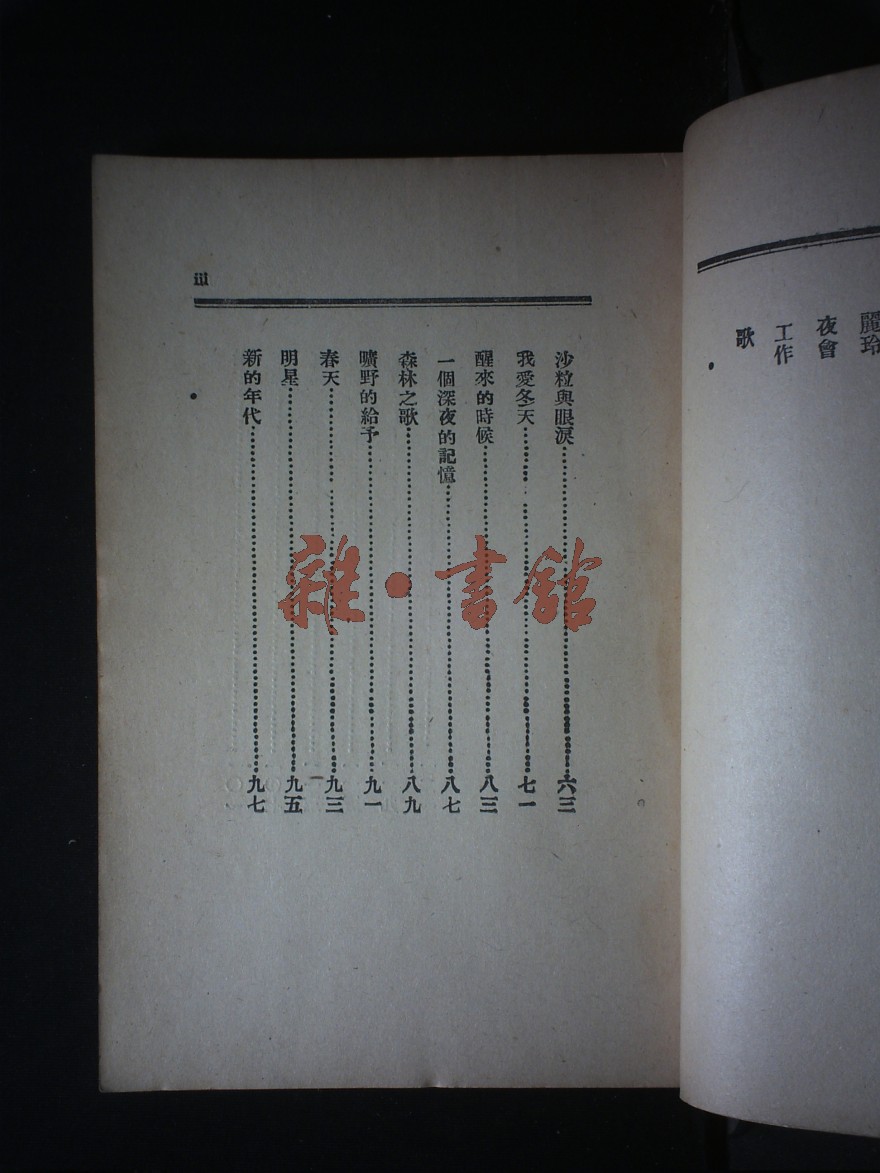 麗玲
夜會
工作
歌
iii
沙粒與眼淚……六三
我愛冬天……七一
醒來的時候……八三
一個深夜的記憶……八七
森林之歌……八九
曠野的給予……九一
春天……九三
明星……九五
新的年代……九七
雜·書館